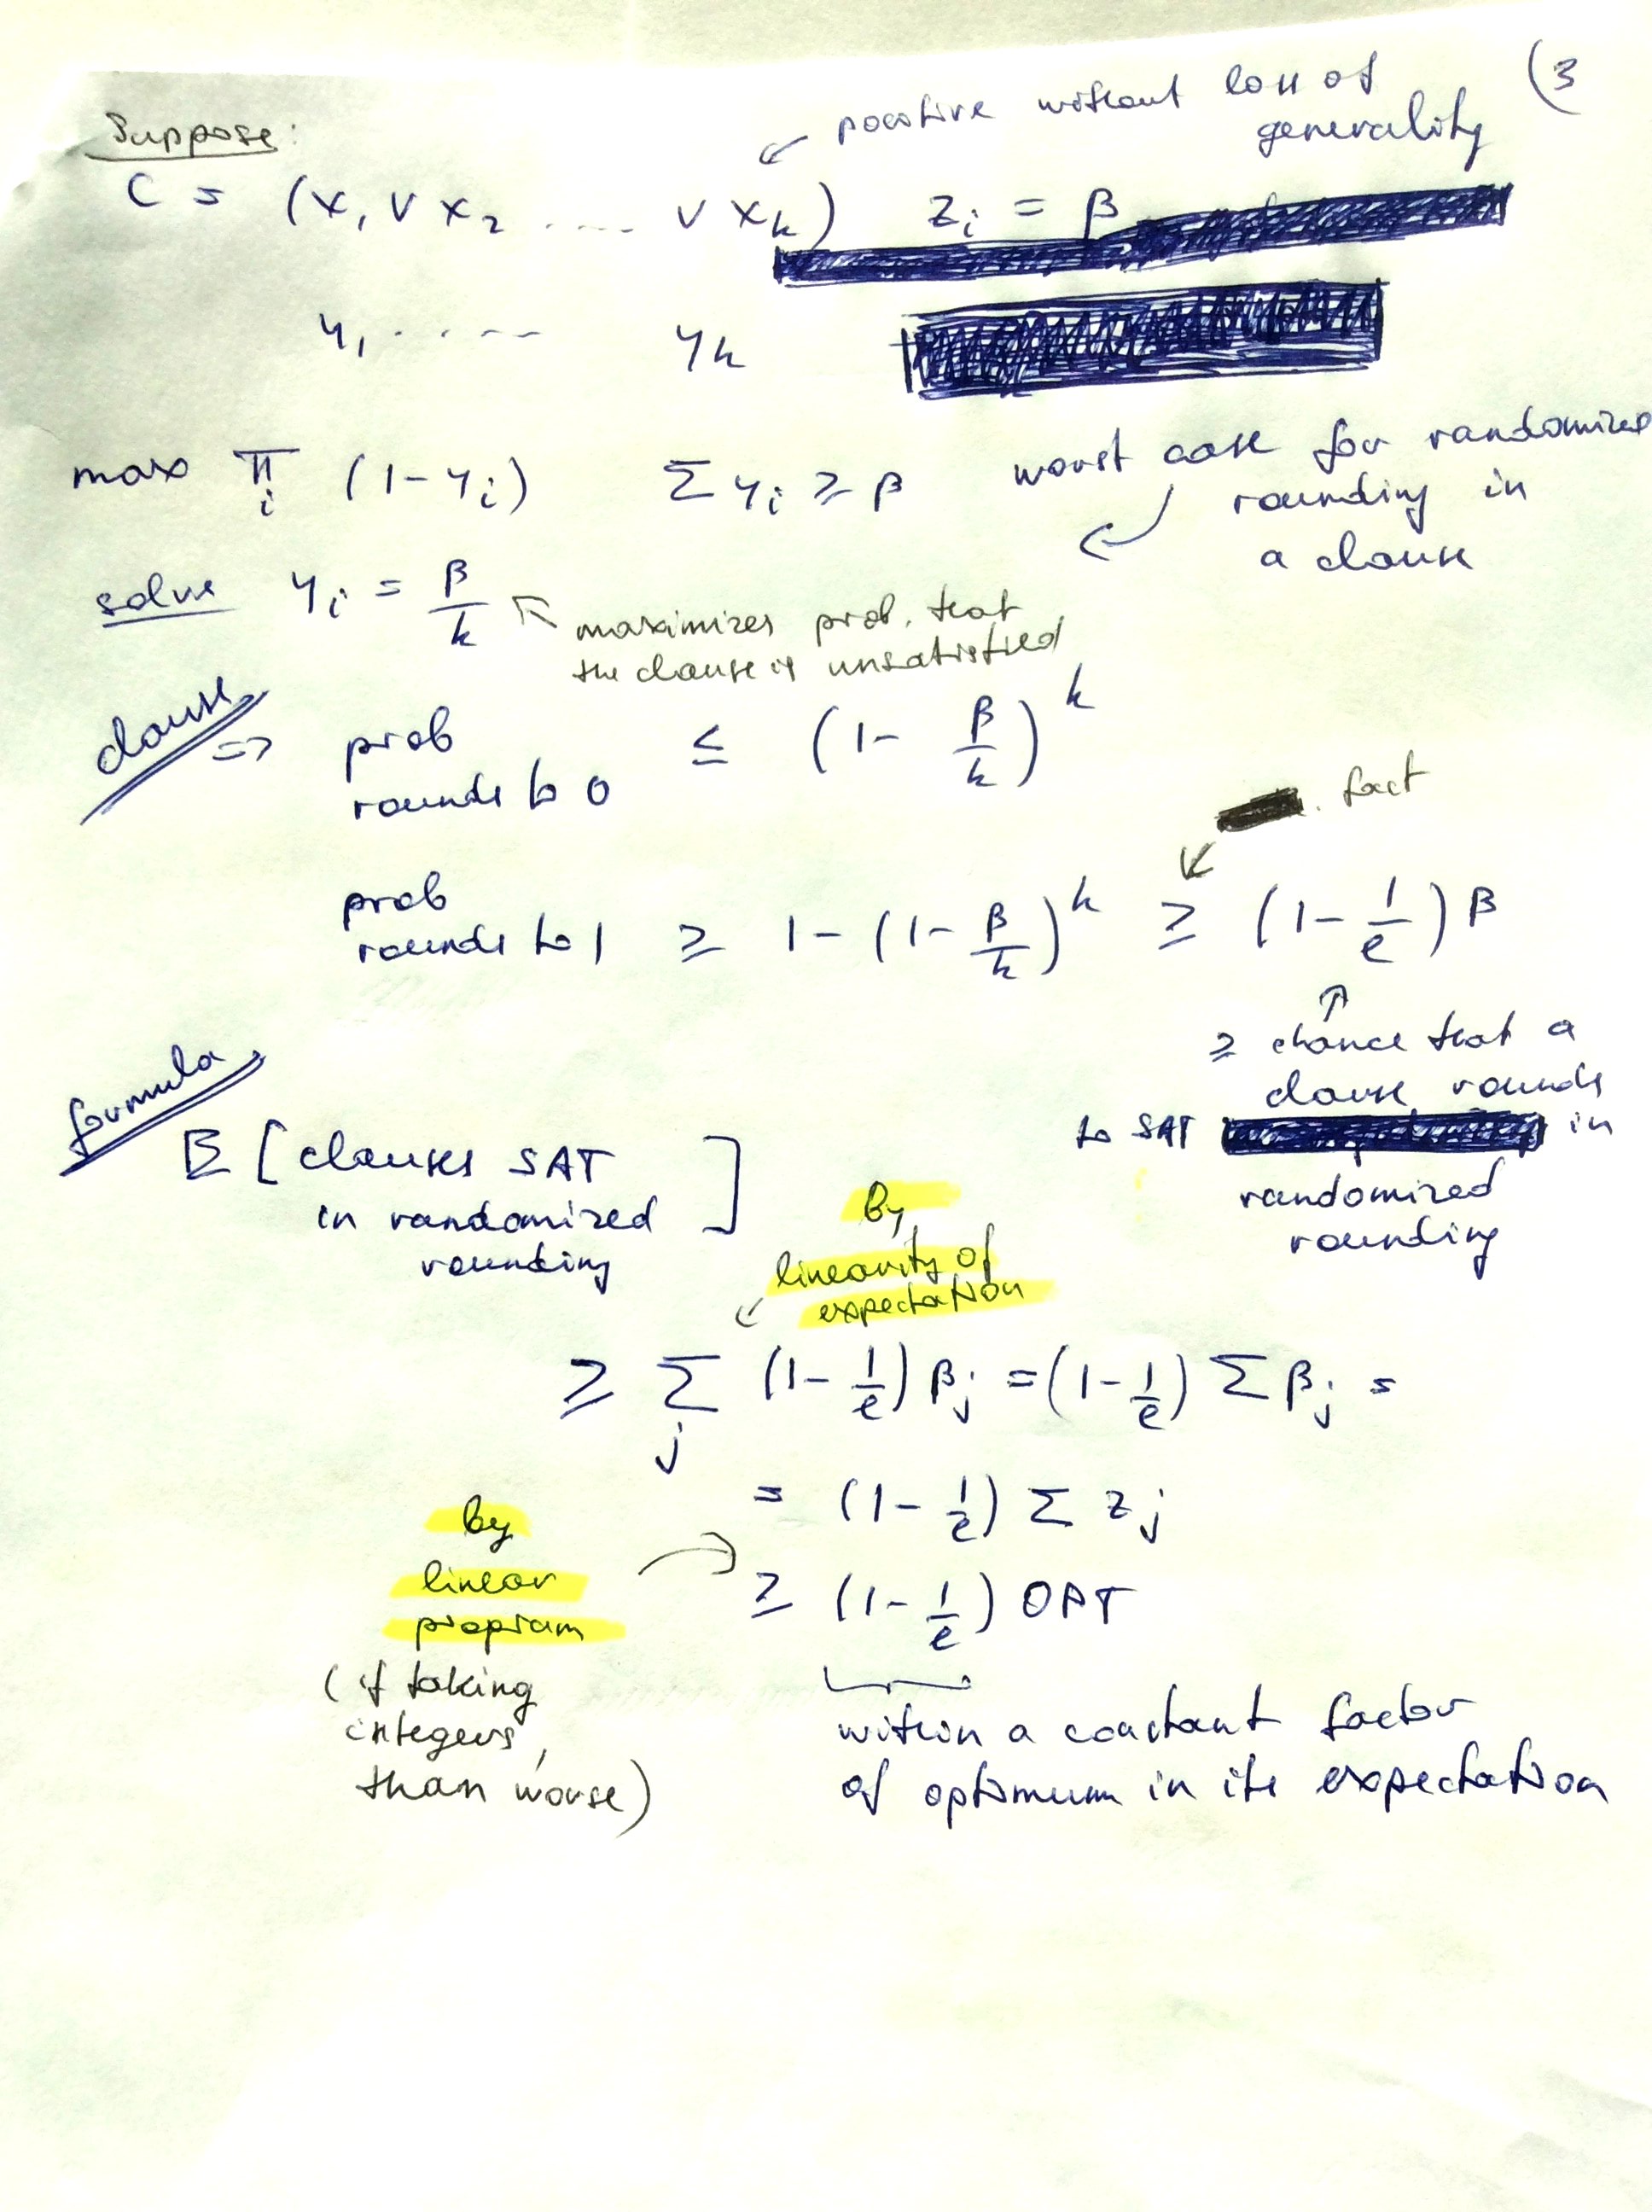 (3
positive without loss of
generality
Suppose:
C = (x₁ ∨ x₂ ..... ∨ xₖ) zᵢ = β
y₁ ..... yₖ
max ∏ᵢ (1-yᵢ) Σyᵢ ≥ β
worst case for randomized
rounding in
a clause
solve yᵢ = β/k
maximizes prob. that
the clause is unsatisfied
clause
⇒ prob
rounds to 0 ≤ (1- β/k)ᵏ
. fact
prob
rounds to 1 ≥ 1-(1-β/k)ᵏ ≥ (1-1/e)β
≥ chance that a
clause rounds
to SAT in
randomized
rounding
formula
E [clauses SAT
in randomized
rounding]
By
linearity of
expectation
≥ Σⱼ (1-1/e)βⱼ = (1-1/e) Σβⱼ =
= (1-1/e) Σ zⱼ
≥ (1-1/e) OPT
by
linear
program
(if taking
integers,
than worse)
within a constant factor
of optimum in its expectation